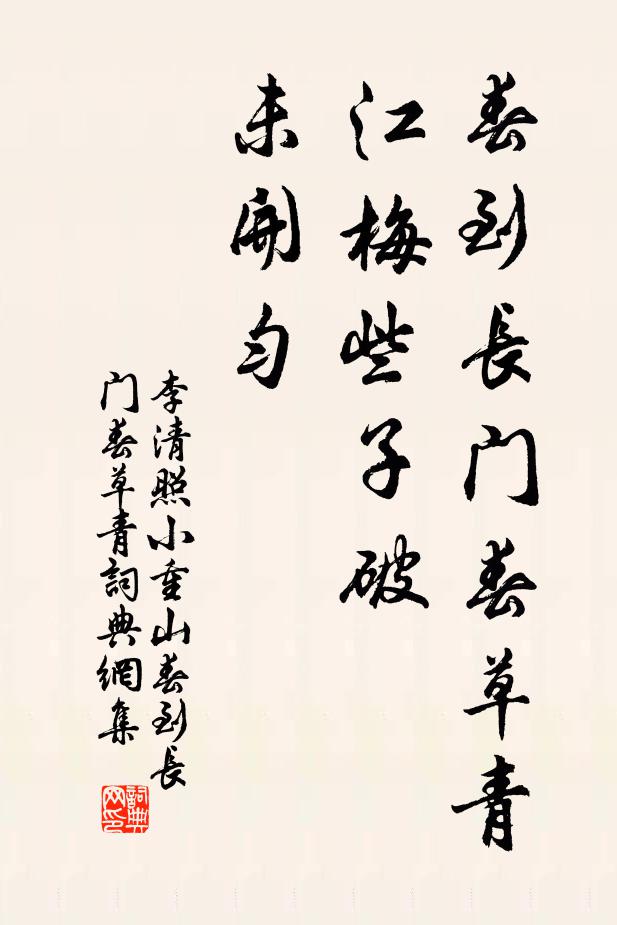 春到長门春草青
江梅些子破
未開匀
李清照小重山春到長
门春草青詞典網集
詞典
网印